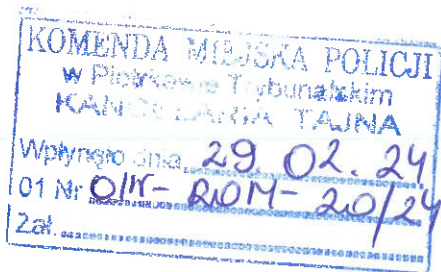 KOMENDA MIEJSKA POLICJI
w Piotrkowie Trybunalskim
KANCELARIA TAJNA
Wpłynęło dnia 29 02. 24
01 Nr
20/24
Zał.